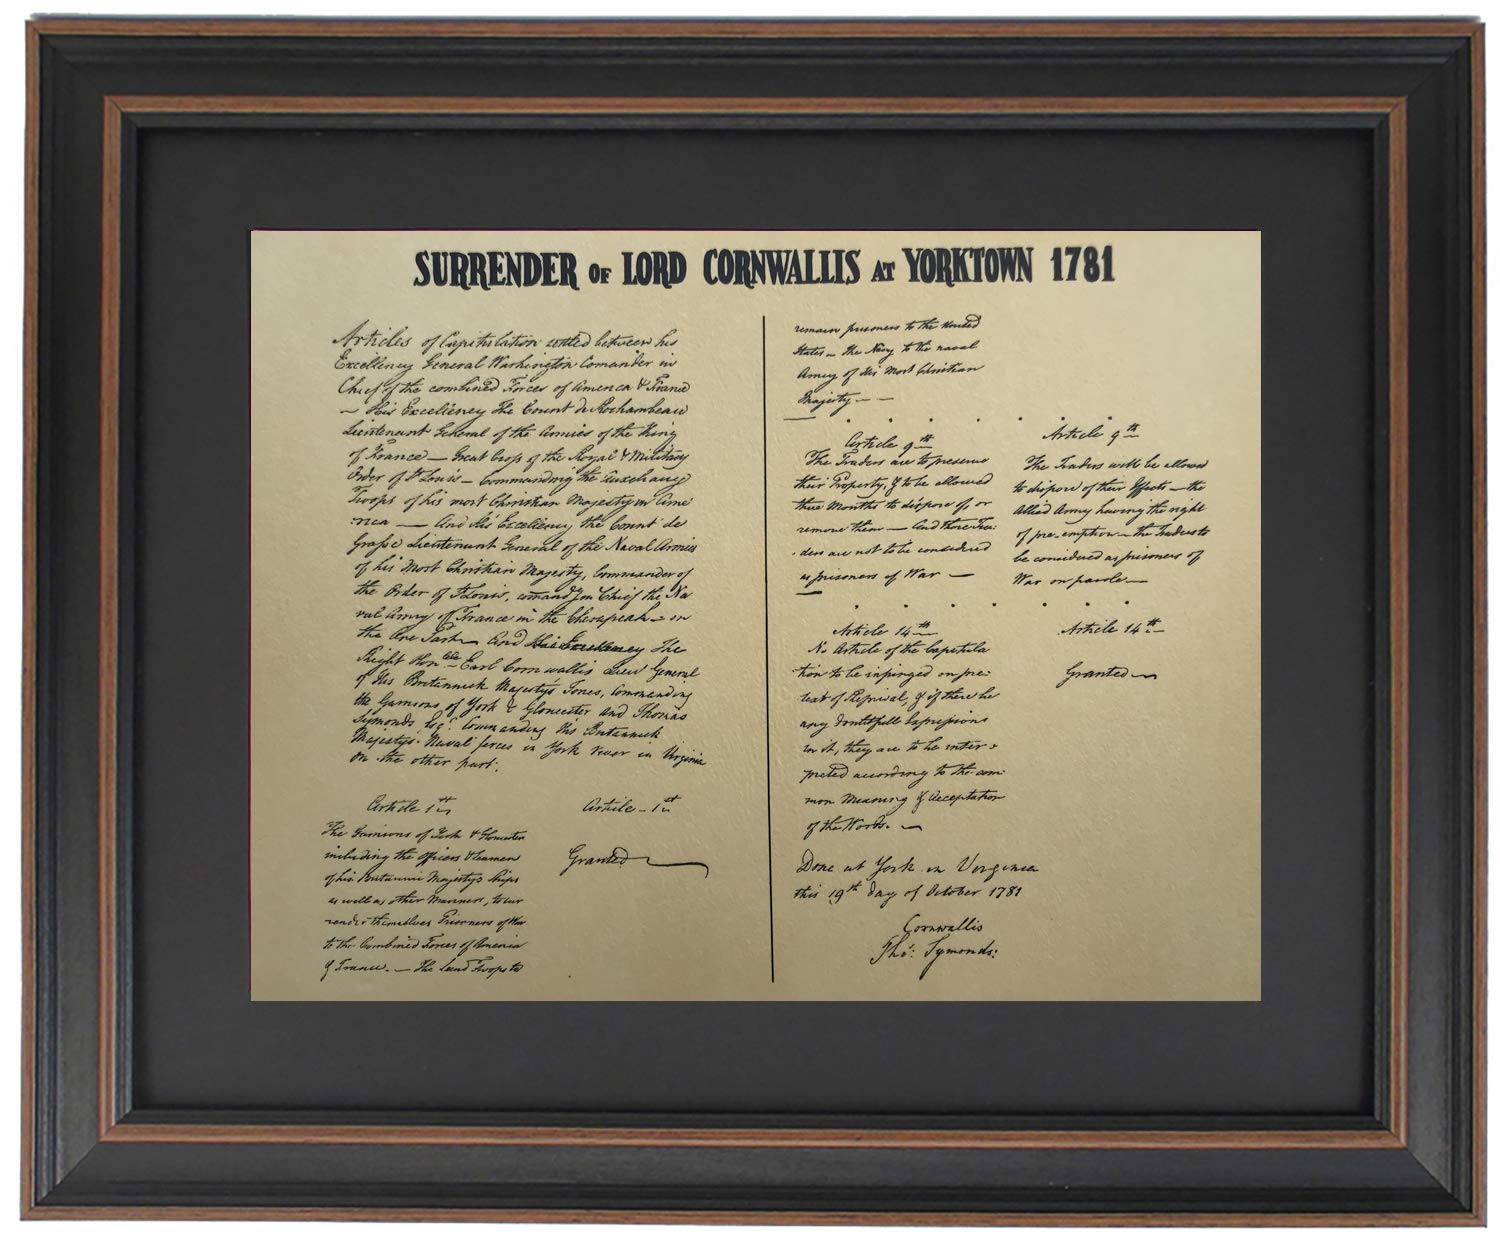 SURRENDER OF LORD CORNWALLIS AT YORKTOWN 1781
Articles of Capitulation settled between his
Excellency General Washington Comander in
Chief of the combined Forces of America & France
— His Excellency The Count de Rochambeau
Lieutenant General of the Armies of the King
of France — Great Cross of the Royal & Military
Order of St Louis — Commanding the Auxeliary
Troops of his most Christian Majesty in Ame
rica — And His Excellency the Count de
Grasse Lieutenant General of the Naval Armies
of his Most Christian Majesty, Commander of
the Order of St Louis, comandg in Chief the Na
val Army of France in the Chesapeak — on
the One Part — And His Excellency The
Right Honble Earl Cornwallis Lieu General
of His Britannick Majesty's Forces, Commanding
the Garrisons of York & Gloucester and Thomas
Symonds Esqr Commanding His Britannick
Majestys Naval forces in York River in Virginia
on the other part.
Article 1st
The Garrisons of York & Gloucester
including the officers & Seamen
of his Britannic Majesty's Ships
as well as other Mariners, to sur
render themselves Prisoners of War
to the Combined Forces of America
& France. — The Land Troops to
Article — 1st
Granted
remain prisoners to the United
States — The Navy to the naval
Army of His Most Christian
Majesty — —
Article 9th
The Traders are to preserve
their Property, & to be allowed
three Months to dispose of, or
remove them — And those Tra:
ders are not to be considered
as prisoners of War —
Article 9th
The Traders will be allowed
to dispose of their Effects — the
Allied Army having the right
of pre-emption — the Traders to
be considered as prisoners of
War on parole —
Article 14th
No Article of the Capitula
tion to be infringed on pre:
text of Reprisal, & if there be
any doubtfull Expressions
in it, they are to be inter:
preted according to the com:
mon Meaning & Acceptation
of the Words. —
Article 14th —
Granted —
Done at York in Virginia
this 19th day of October 1781
Cornwallis
Tho: Symonds: